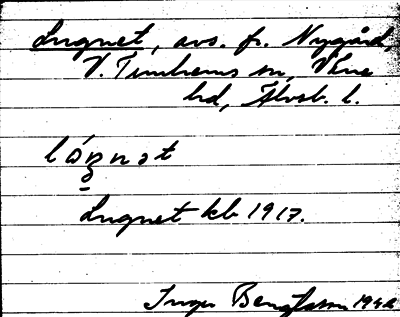 Lugnet, avs. fr. Nygård,
V. Tunhems sn, Väne
hd, Älvsb. l.
Lugnet kb 1917.
Inger Bengtsson